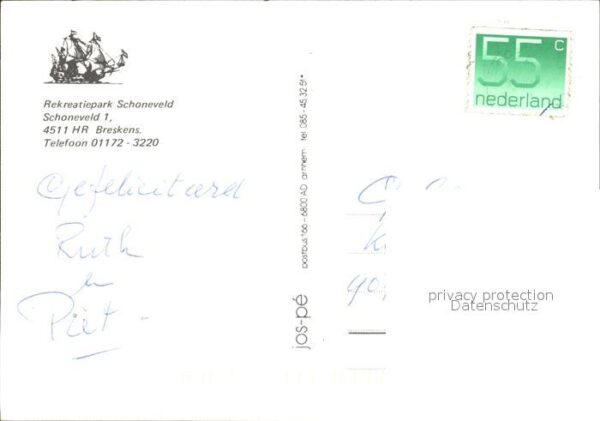 Rekreatiepark Schoneveld
Schoneveld 1,
4511 HR Breskens.
Telefoon 01172 - 3220
Gefeliciteerd
Ruth
Piet -
jos-pé
postbus 166 - 6800 AD arnhem tel. 085 - 45.32.51*
55 c
nederland
privacy protection
Datenschutz